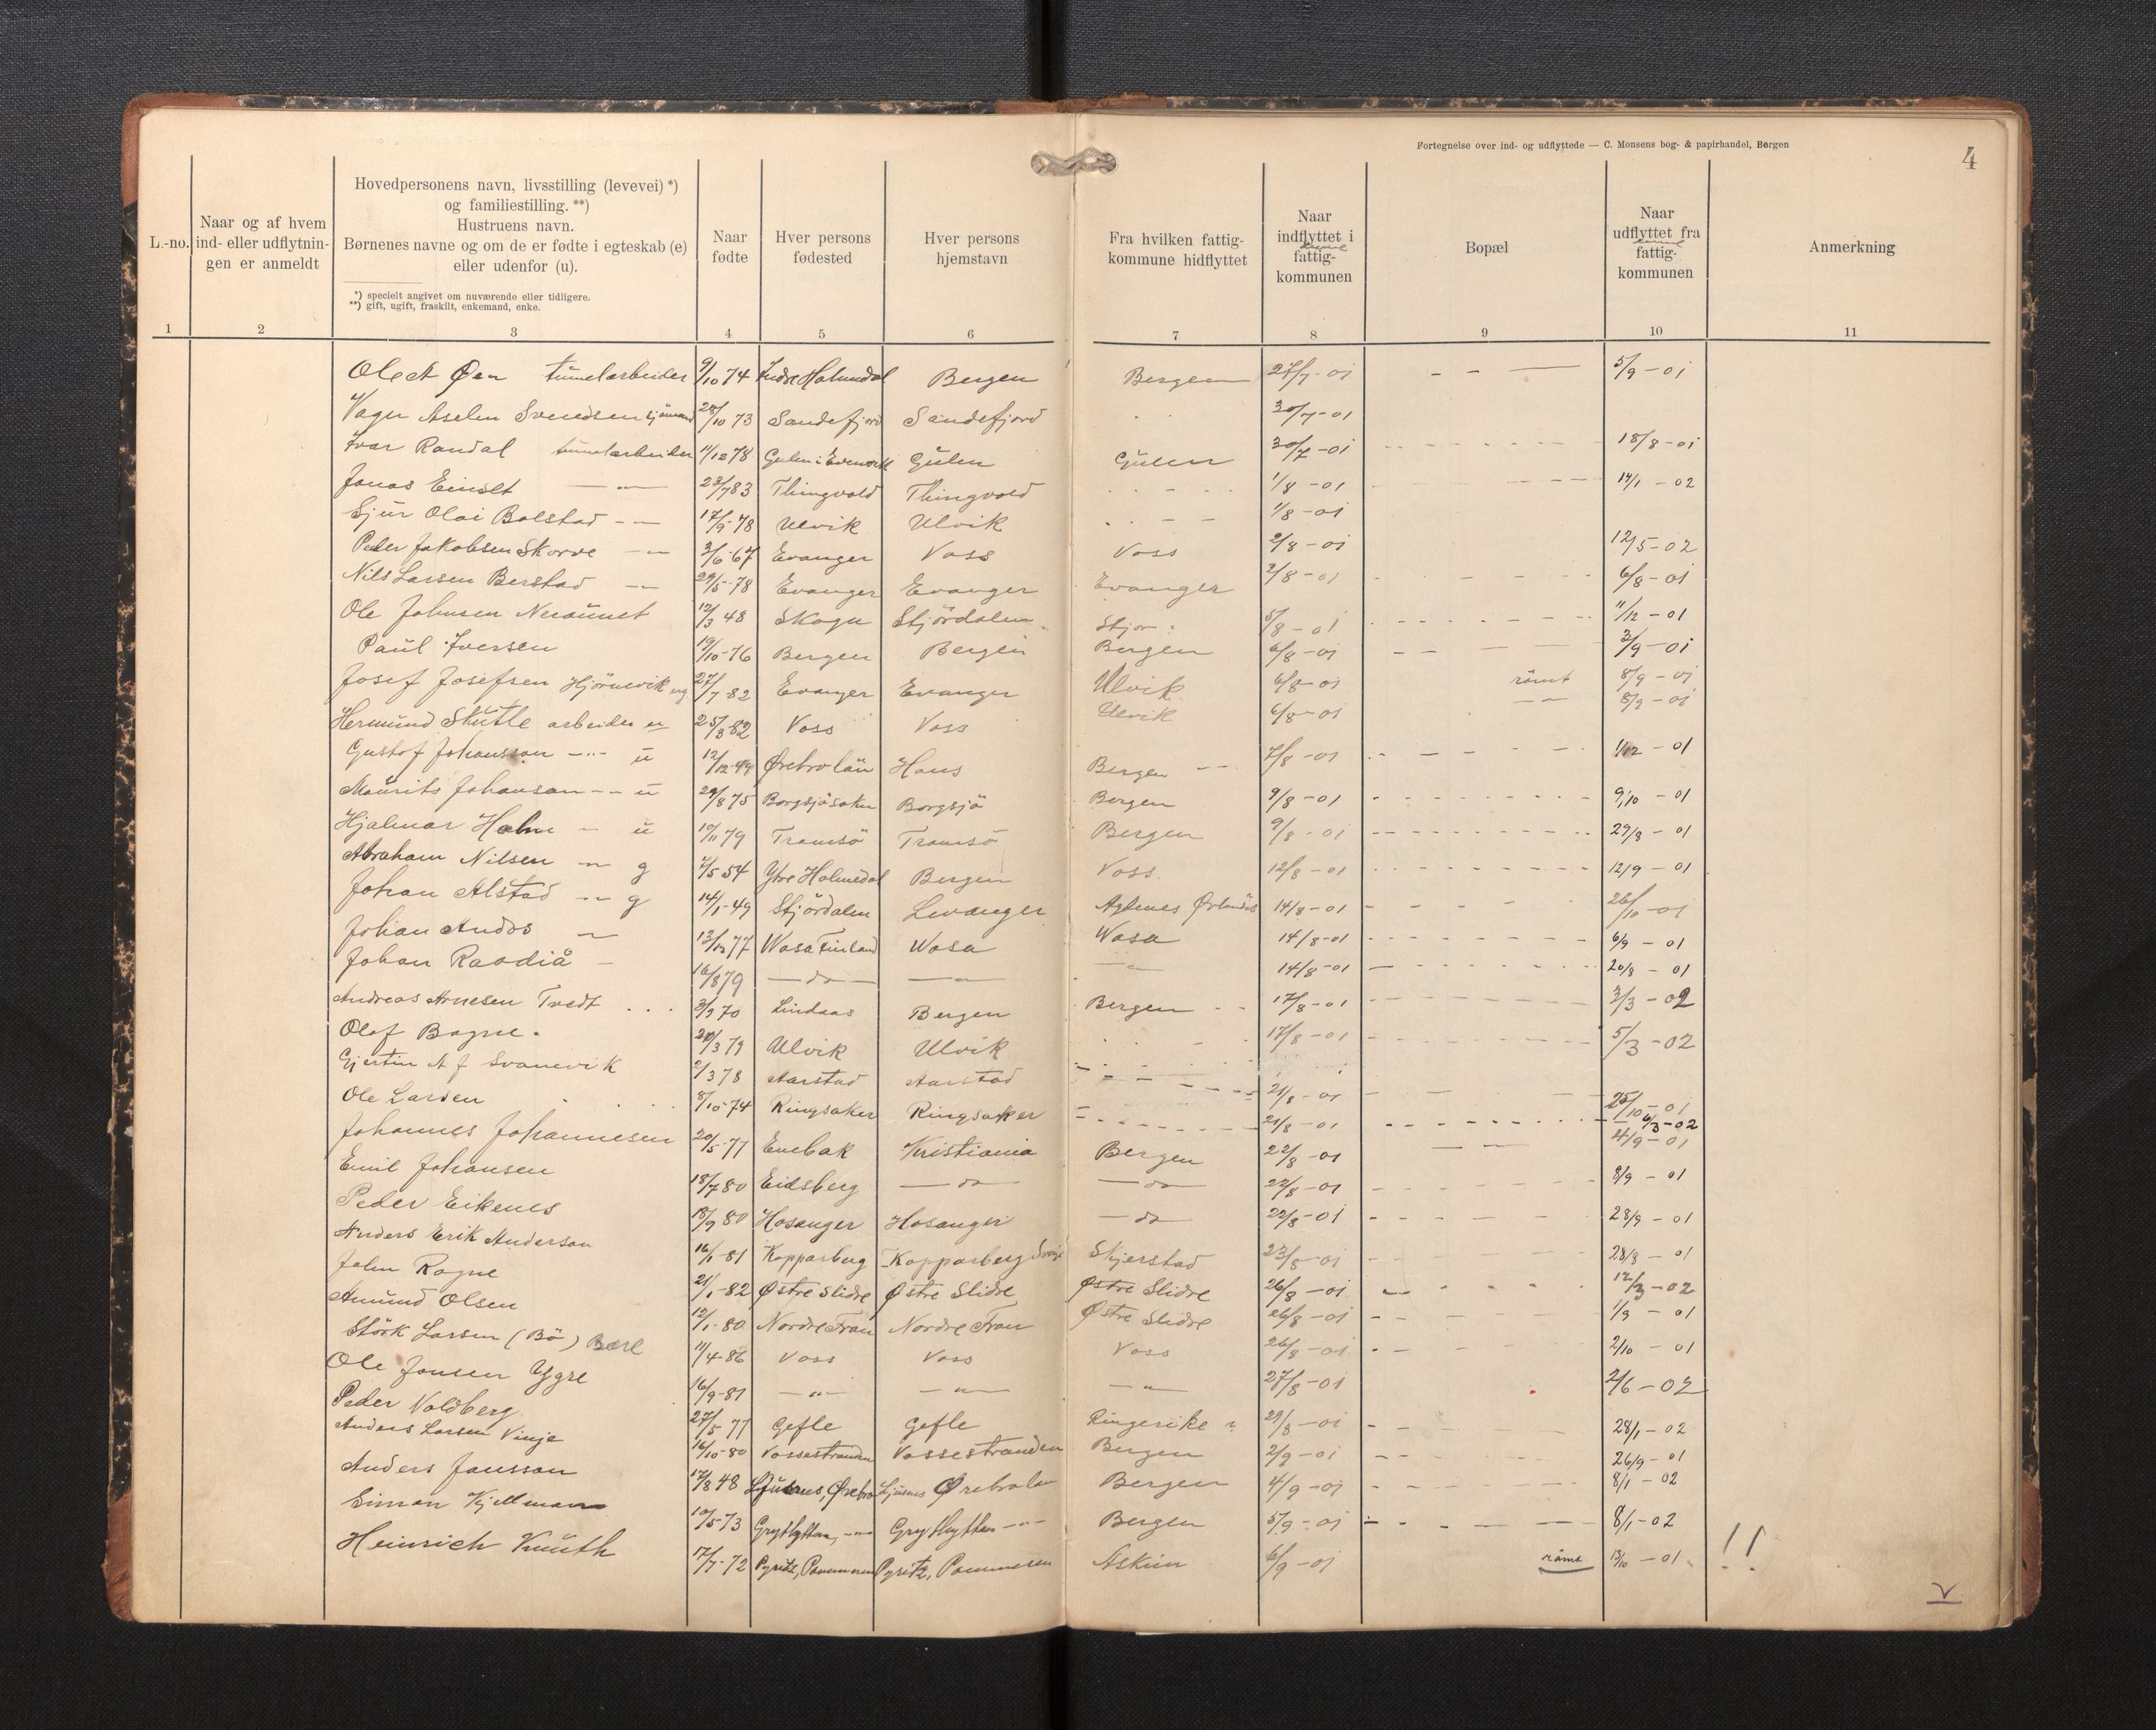 Fortegnelse over ind- og udflyttede — C. Monsens bog- & papirhandel, Bergen
4
L.-no.
Naar og af hvem ind- eller udflytningen er anmeldt
Hovedpersonens navn, livsstilling (levevei) *) og familiestilling. **)
Hustruens navn.
Børnenes navne og om de er fødte i egteskab (e) eller udenfor (u).
*) specielt angivet om nuværende eller tidligere.
**) gift, ugift, fraskilt, enkemand, enke.
Naar fødte
Hver persons fødested
Hver persons hjemstavn
Fra hvilken fattigkommune hidflyttet
Naar indflyttet i fattigkommunen
Bopæl
Naar udflyttet fra fattigkommunen
Anmerkning
1 2 3 4 5 6 7 8 9 10 11
Ole A Øen tunnelarbeider 9/10 74 Indre Holmedal Bergen Bergen 27/7-01 - - — 5/9-01
Vagn Aselm Svendsen sjømand 28/10 73 Sandefjord Sandefjord 30/7-01
Ivar Randal tunnelarbeider 11/12 78 Gulen i Gulen Gulen 30/7-01 18/8-01
Jonas — " — 23/7 83 Thingvold Thingvold 1/8-01 14/1-02
Sjur Olai Bolstad - " - 17/9-78 Ulvik Ulvik 1/8-01
Peder Jakobsen Skorve - " - 3/6-67 Evanger Voss Voss 2/8-01 12/5-02
Nils Larsen Berstad - " - 29/5-78 Evanger Evanger Evanger 2/8-01 6/8-01
Ole Johnsen 12/3 48 Skogn Stjördalen Stjor. 5/8-01 11/12-01
Paul Iversen 19/10-76 Bergen Bergen Bergen 6/8-01 3/9-01
Josef Josefsen Hjörnevik ug 27/7 82 Evanger Evanger Ulvik 6/8-01 römt 8/9-01
Hermund Skutle arbeider 25/8 82 Voss Voss Ulvik 6/8-01 - " - 8/9-01
Gustof Johansson - " - u 12/12-49 Ørebro län Hans Bergen 7/8-01 1/12-01
Mauritz Johansan - " - u 29/8 75 Borgsjösokn Borgsjö Bergen 9/8-01 9/10-01
Hjalmar Holm - " - u 10/11 79 Tromsö Tromsö Bergen 9/8-01 29/8-01
Abraham Nilsen - " - g 7/5 54 Ytre Holmedal Bergen Voss 12/8-01 12/9-01
Johan Alstad - " - g 14/1-49 Stjördalen Levanger Agdenes Ørlandet 14/8-01 26/10-01
Johan Andos - " - 13/12 77 Wasa Finland Wasa Wasa 14/8-01 6/9-01
Johan Raodiå - 16/8 79 — do — — " — — " — 14/8-01 20/8-01
Andreas Arnesen Tvedt 3/9 70 Lindaas Bergen Bergen 17/8-01 3/3-02
Olaf Bagne 20/3 79 Ulvik Ulvik 17/8-01 5/3-02
Gjertin A f Svanevik 2/3 78 Aarstad Aarstad 21/8-01 25/10-01
Ole Larsen 8/10-74 Ringsaker Ringsaker 21/8-01 6/3-02
Johannes Johannesen 20/5-77 Enebak Kristiania Bergen 22/8-01 4/9-01
Emil Johansen 18/7 80 Eidsberg — do — do — 22/8-01 8/9-01
Peder Eikenes 18/9 80 Hosanger Hosanger — do 22/8-01 28/9-01
Anders Erik Anderson 16/1-81 Kopparberg Kopparberg Sverige Skjerstad 23/8-01 28/8-01
John Rogne 21/1-82 Østre Slidre Østre Slidre Østre Slidre 26/8-01 12/3-02
Amund Olsen 12/1-80 Nordre Fron Nordre Fron Østre Slidre 26/8-01 1/9-01
Störk Larsen (Bö) 11/4-86 Voss Voss Voss 26/8-01 2/10-01
Ole Jonsen Ygre 16/9-81 — " — — " — — " — 27/8-01 2/6-02
Peder Voldberg 27/5 77 Gefle Gefle Ringerike 29/8-01 28/1-02
Anders Larsen Vinje 16/10-80 Vossestranden Vossestranden Bergen 2/9-01 26/9-01
Anders Jansson 17/8 48 Ljusnes, Ørebro Ljusnes Ørebrolen Bergen 4/9-01 8/1-02
Simon Kjellman 10/5-73 Grythyttan, - " - Grythyttan - " - Bergen 5/9-01 8/1-02
Heinrich Knuth 17/7-72 Pyritz, Pommern Pyritz, Pommern Askim 6/9-01 römt 13/10-01 !!